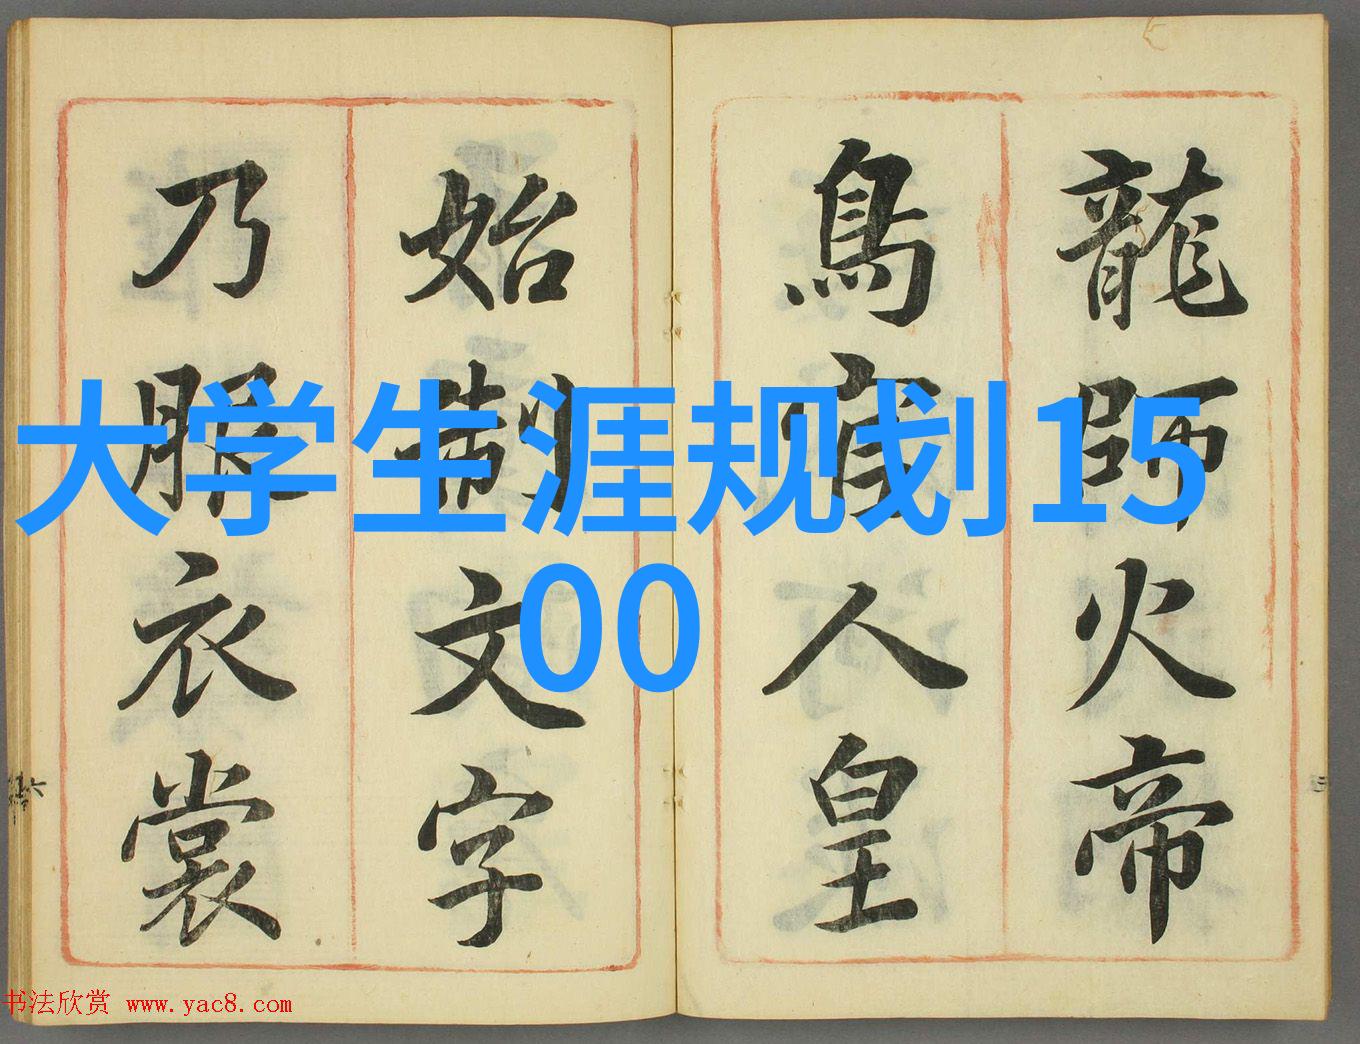 龍師火帝
鳥官人皇
始制文字
乃服衣裳
大学生涯规划15
00
书法欣赏 www.yac8.com